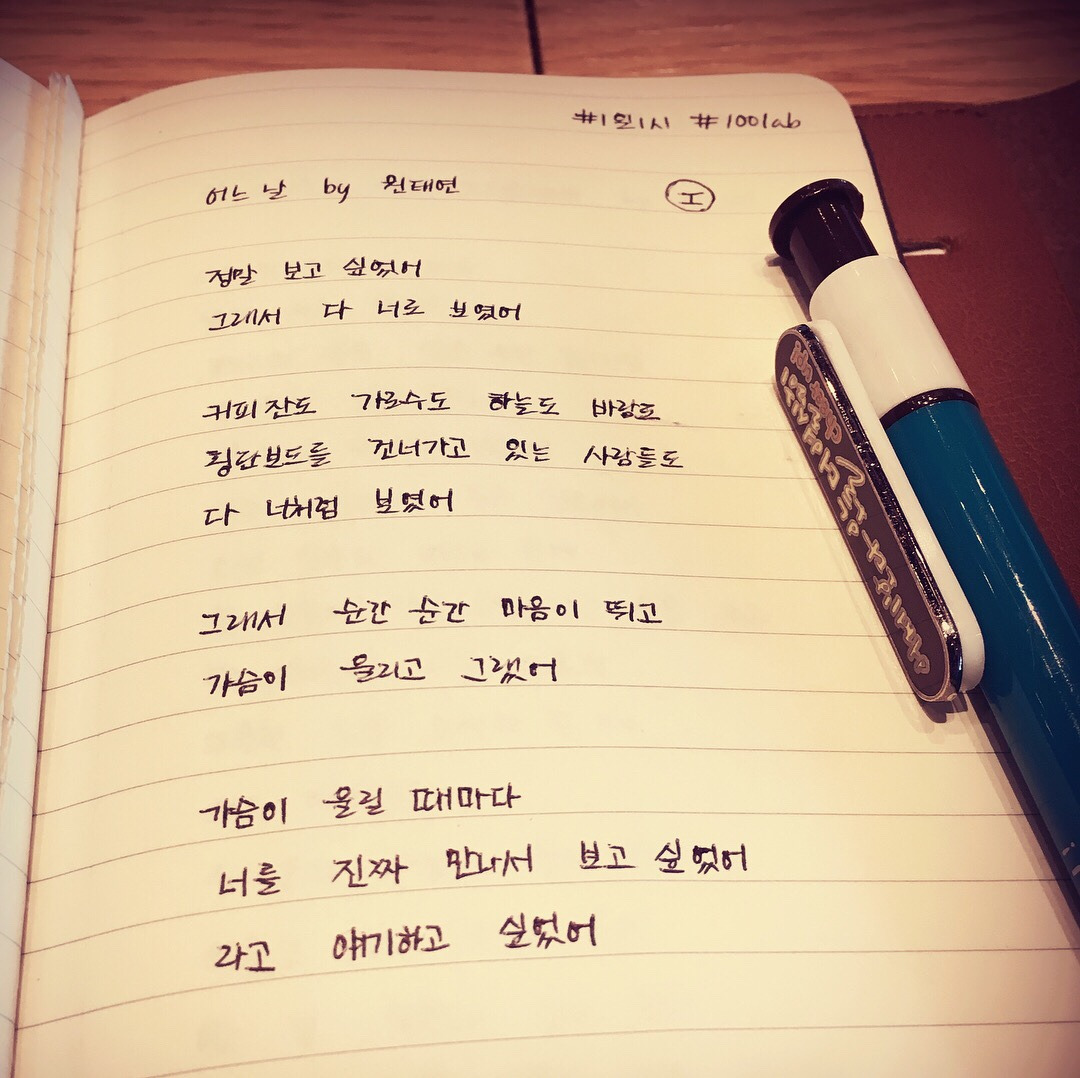 #1일1시 #100lab
어느 날 by 원태연
정말 보고 싶었어
그래서 다 너로 보였어
커피잔도 가로수도 하늘도 바람도
횡단보드를 건너가고 있는 사람들도
다 너처럼 보였어
그래서 순간 순간 마음이 뛰고
가슴이 울리고 그랬어
가슴이 울릴 때마다
너를 진짜 만나서 보고 싶었어
라고 얘기하고 싶었어